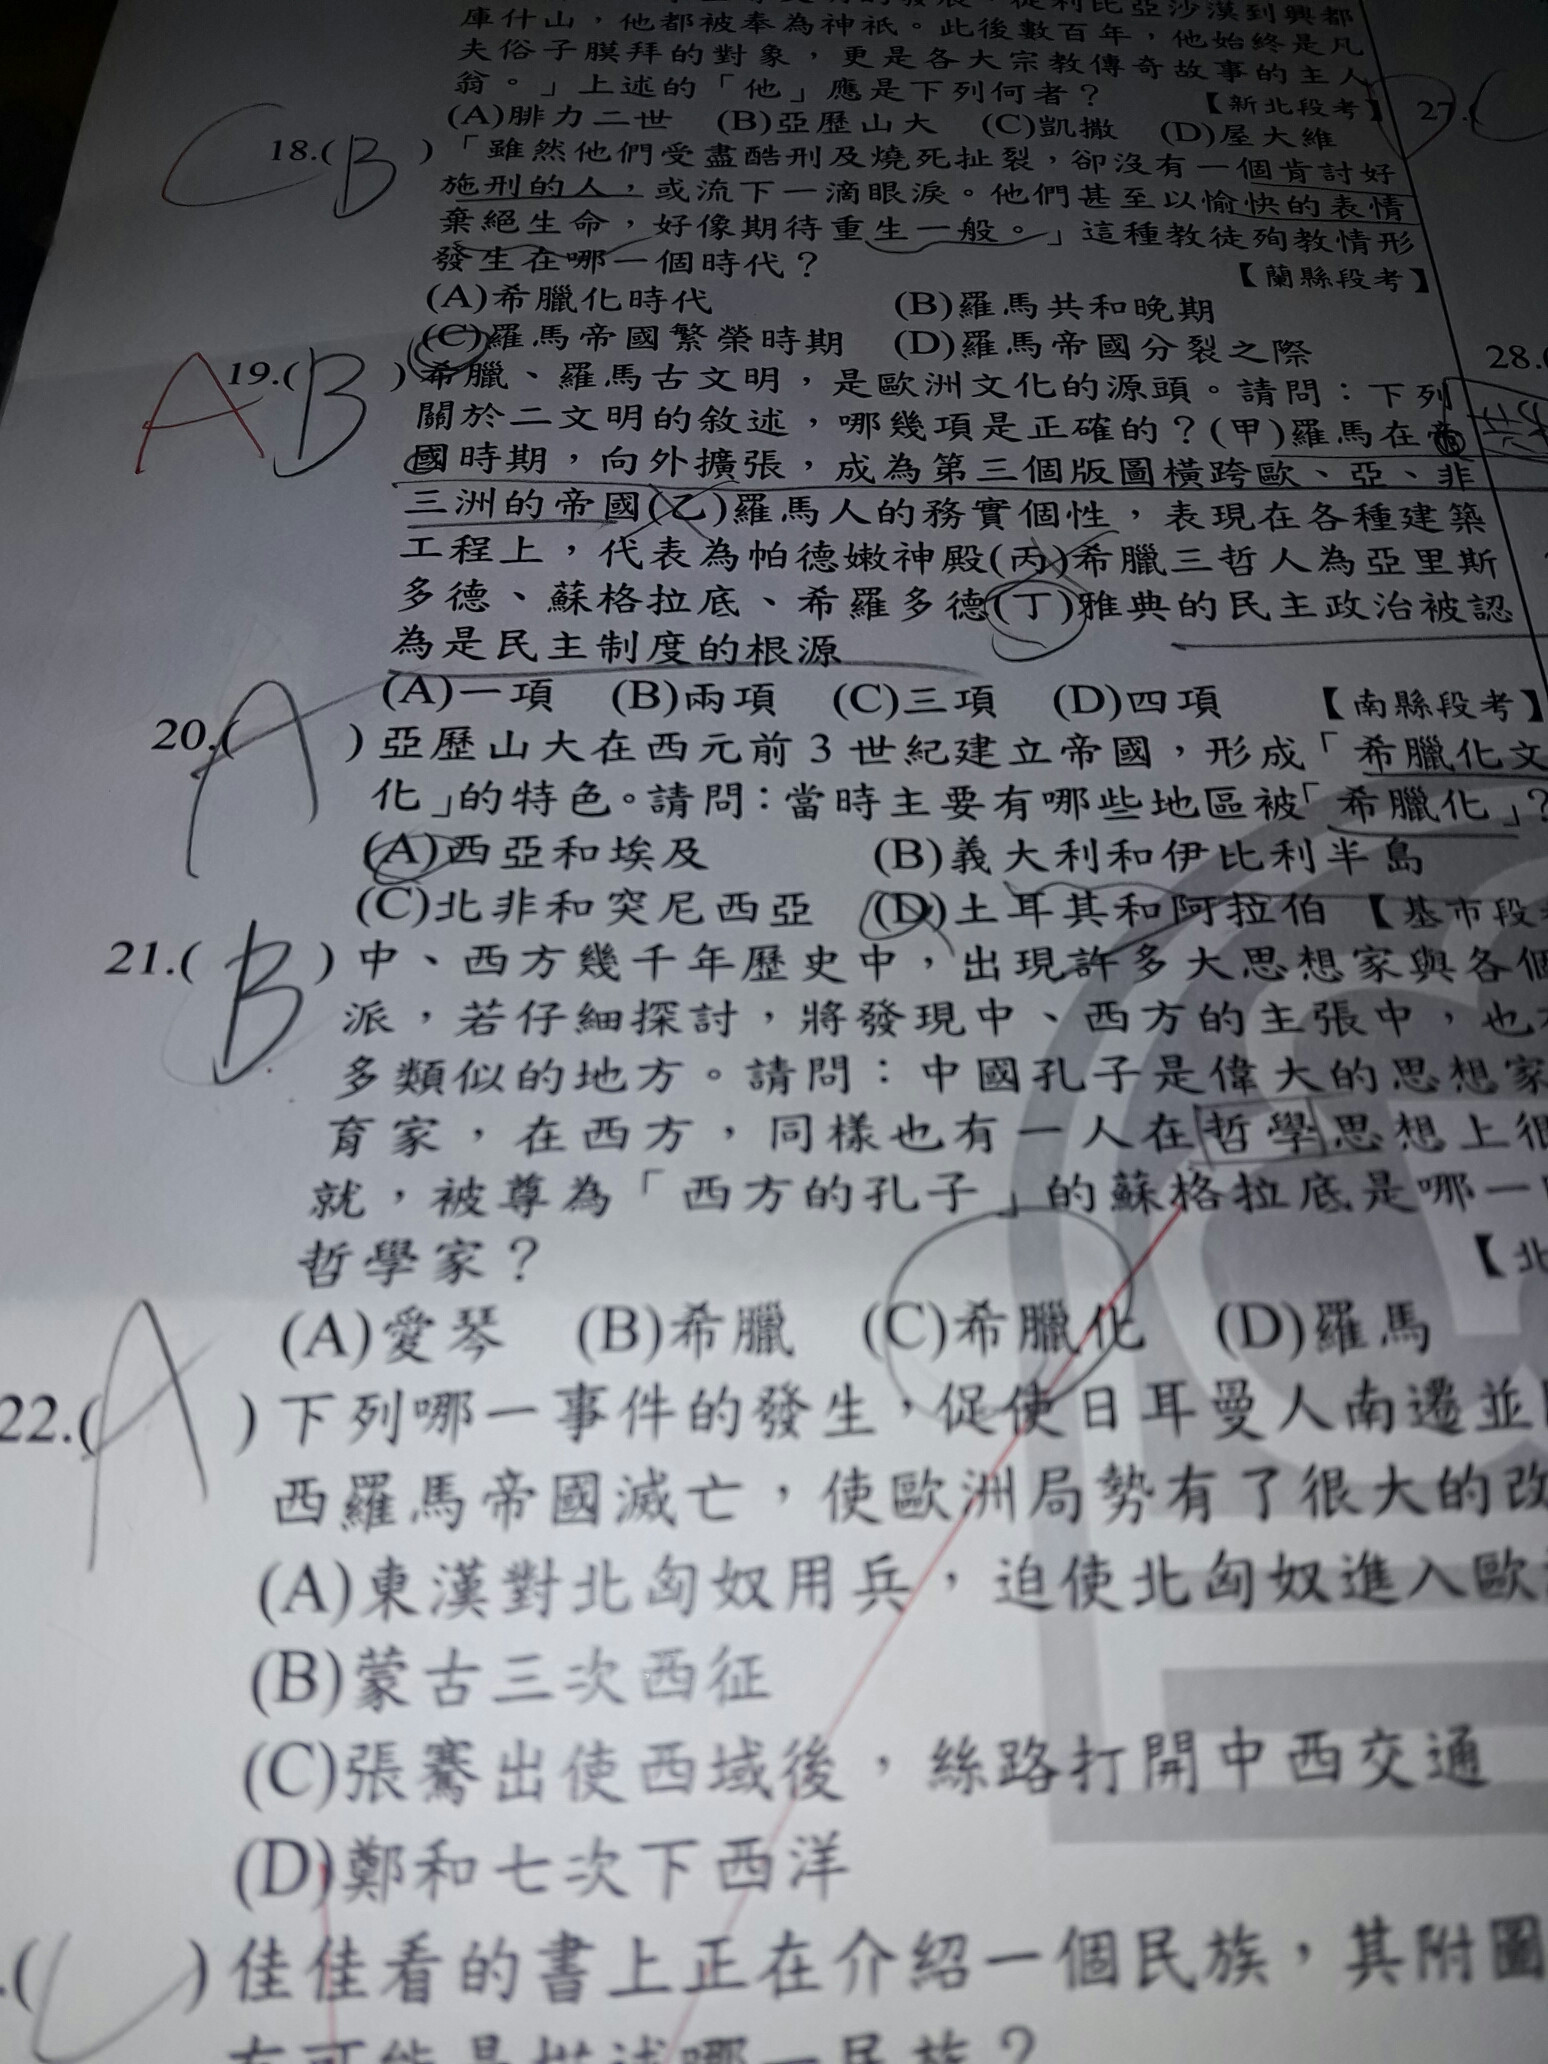 庫什山，他都被奉為神祇。此後數百年，他始終是凡
夫俗子膜拜的對象，更是各大宗教傳奇故事的主人
翁。」上述的「他」應是下列何者？ 【新北段考】
(A)腓力二世 (B)亞歷山大 (C)凱撒 (D)屋大維
C 18.( B )「雖然他們受盡酷刑及燒死扯裂，卻沒有一個肯討好
施刑的人，或流下一滴眼淚。他們甚至以愉快的表情
棄絕生命，好像期待重生一般。」這種教徒殉教情形
發生在哪一個時代？ 【蘭縣段考】
(A)希臘化時代 (B)羅馬共和晚期
(C)羅馬帝國繁榮時期 (D)羅馬帝國分裂之際
A 19.( B )希臘、羅馬古文明，是歐洲文化的源頭。請問：下列
關於二文明的敘述，哪幾項是正確的？(甲)羅馬在帝
國時期，向外擴張，成為第三個版圖橫跨歐、亞、非
三洲的帝國(乙)羅馬人的務實個性，表現在各種建築
工程上，代表為帕德嫩神殿(丙)希臘三哲人為亞里斯
多德、蘇格拉底、希羅多德(丁)雅典的民主政治被認
為是民主制度的根源
(A)一項 (B)兩項 (C)三項 (D)四項 【南縣段考】
20.( A )亞歷山大在西元前3世紀建立帝國，形成「希臘化文
化」的特色。請問：當時主要有哪些地區被「希臘化」？
(A)西亞和埃及 (B)義大利和伊比利半島
(C)北非和突尼西亞 (D)土耳其和阿拉伯 【基市段
21.( B )中、西方幾千年歷史中，出現許多大思想家與各個
派，若仔細探討，將發現中、西方的主張中，也
多類似的地方。請問：中國孔子是偉大的思想家
育家，在西方，同樣也有一人在哲學思想上很
就，被尊為「西方的孔子」的蘇格拉底是哪一
哲學家？ 【北
(A)愛琴 (B)希臘 (C)希臘化 (D)羅馬
22.( A )下列哪一事件的發生，促使日耳曼人南遷並
西羅馬帝國滅亡，使歐洲局勢有了很大的改
(A)東漢對北匈奴用兵，迫使北匈奴進入歐
(B)蒙古三次西征
(C)張騫出使西域後，絲路打開中西交通
(D)鄭和七次下西洋
.( C )佳佳看的書上正在介紹一個民族，其附圖
27.(
28.(